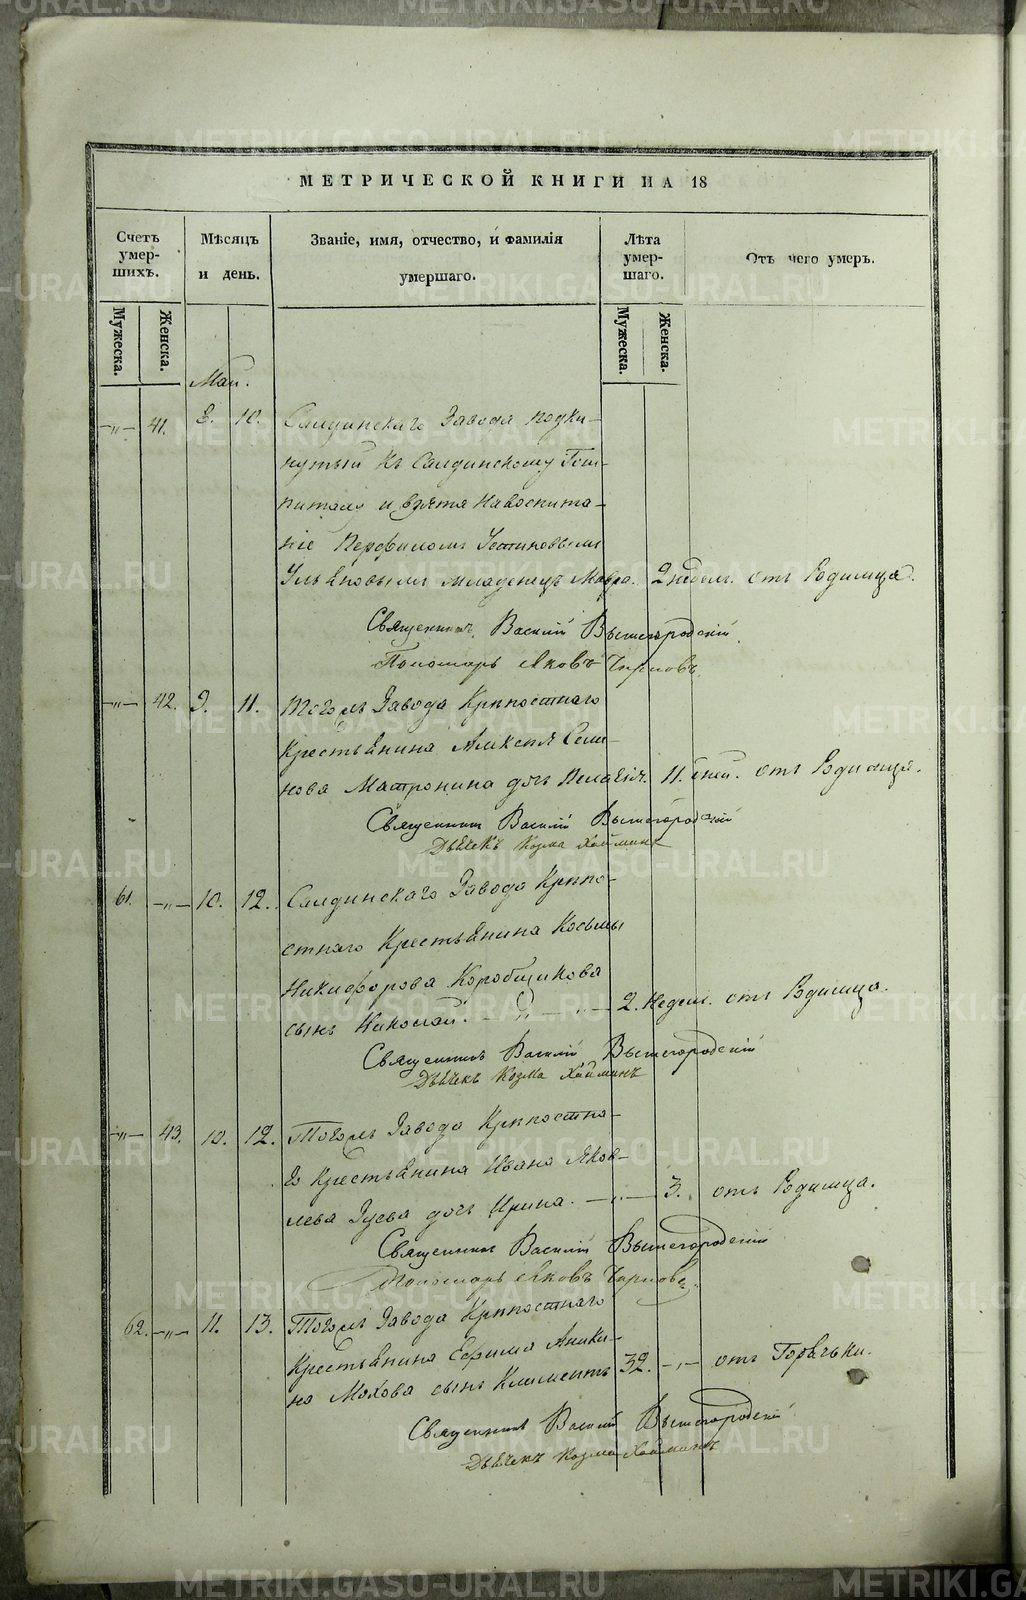 МЕТРИЧЕСКОЙ КНИГИ НА 18
Счетъ умер-шихъ.
Мѣсяцъ и день.
Званіе, имя, отчество, и фамилія умершаго.
Лѣта умер-шаго.
Отъ чего умеръ.
Мужеска.
Женска.
Мужеска.
Женска.
Маи.
—„— 41. 8. 10. Салдинскаго Завода подки-
нутый къ Салдинскому Гош-
питалю и взята Навоспита-
ніе Перфиломъ Устиновымъ
Ульяновымъ младенецъ Мавра. 2 недел. отъ Родимца.
Священникъ Василій Вышегородскій
Пономарь Яковъ Чирковъ.
—„— 42. 9. 11. Тогожъ Завода Крѣпостнаго
Крестьянина Алексѣя Семе-
нова Матронина дочь Пелагія. 11. дней. отъ Родимца.
Священникъ Василій Вышегородскій
Дьячекъ Козма Хайминъ
61. —„— 10. 12. Салдинскаго Завода Крѣпо-
стнаго Крестьянина Косьмы
Никифорова Коробщикова
сынъ Николай. —„— —„— 2. недел. отъ Родимца.
Священникъ Василій Вышегородскій
Дьячекъ Козма Хайминъ
—„— 43. 10. 12. Тогожъ Завода Крѣпостна-
го Крестьянина Ивана Яков-
лева Зуева дочь Ирина. —„— 3. отъ Родимца.
Священникъ Василій Вышегородскій
Пономарь Яковъ Чирковъ.
62. —„— 11. 13. Тогожъ Завода Крѣпостнаго
Крестьянина Ефима Аники-
на Мохова сынъ Климентъ 32. —„— отъ Горячьки.
Священникъ Василій Вышегородскій
Дьячекъ Козма Хайминъ
METRIKI.GASO-URAL.RU